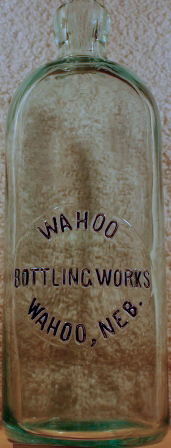 WAHOO
BOTTLING WORKS
WAHOO, NEB.